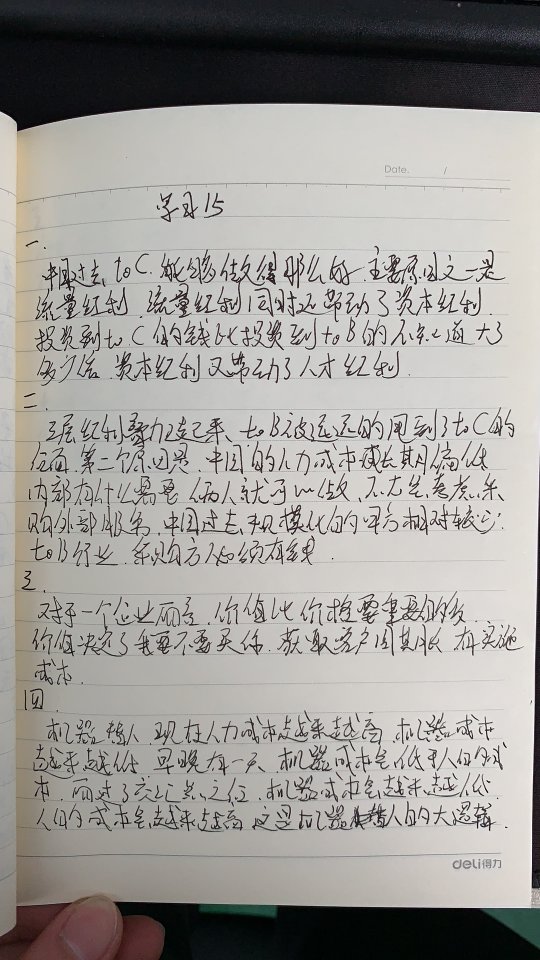 Date.      /
学习15
一.
中国过去, to C. 能够做得那么好. 主要原因之一是
流量红利. 流量红利同时还带动了资本红利.
投资到 to C 的钱比投资到 to B 的不知道大了
多少倍. 资本红利又带动了人才红利.
二.
三层红利叠加起来, to B 被远远的甩到了 to C 的
后面. 第二个原因是. 中国的人力成本成长期偏低
内部有什么需要 俩人就可以做, 不优先考虑采
购外部服务. 中国过去规模化的公司相对较少.
to B 行业. 采购方必须有钱.
三.
对于一个企业而言. 价值比价格要重要的多
价值决定了我要不要买你. 获取客户周期长 有实施
成本.
四.
机器换人. 现在人力成本越来越高. 机器成本
越来越低 早晚有一天 机器成本会低于人的成
本. 而过了交汇点之后. 机器成本会越来越低
人的成本会越来越高 这是机器换人的大逻辑.
deli得力